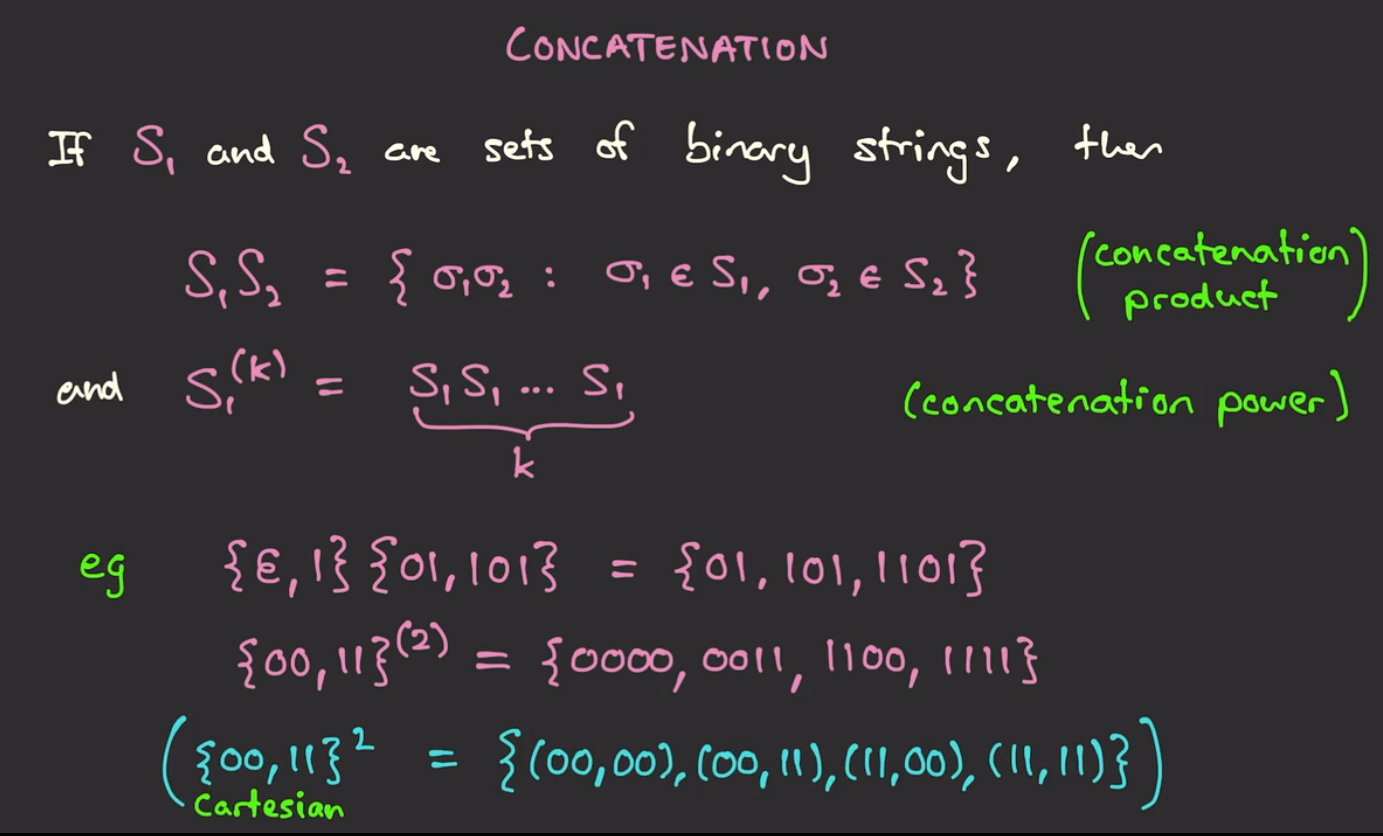 CONCATENATION
If S₁ and S₂ are sets of binary strings, then
S₁S₂ = { σ₁σ₂ : σ₁ ∈ S₁, σ₂ ∈ S₂} (concatenation product)
and S₁⁽ᵏ⁾ = S₁S₁ ... S₁ (concatenation power)
k
eg {ε,1}{01,101} = {01,101,1101}
{00,11}⁽²⁾ = {0000,0011,1100,1111}
({00,11}² = {(00,00),(00,11),(11,00),(11,11)})
Cartesian